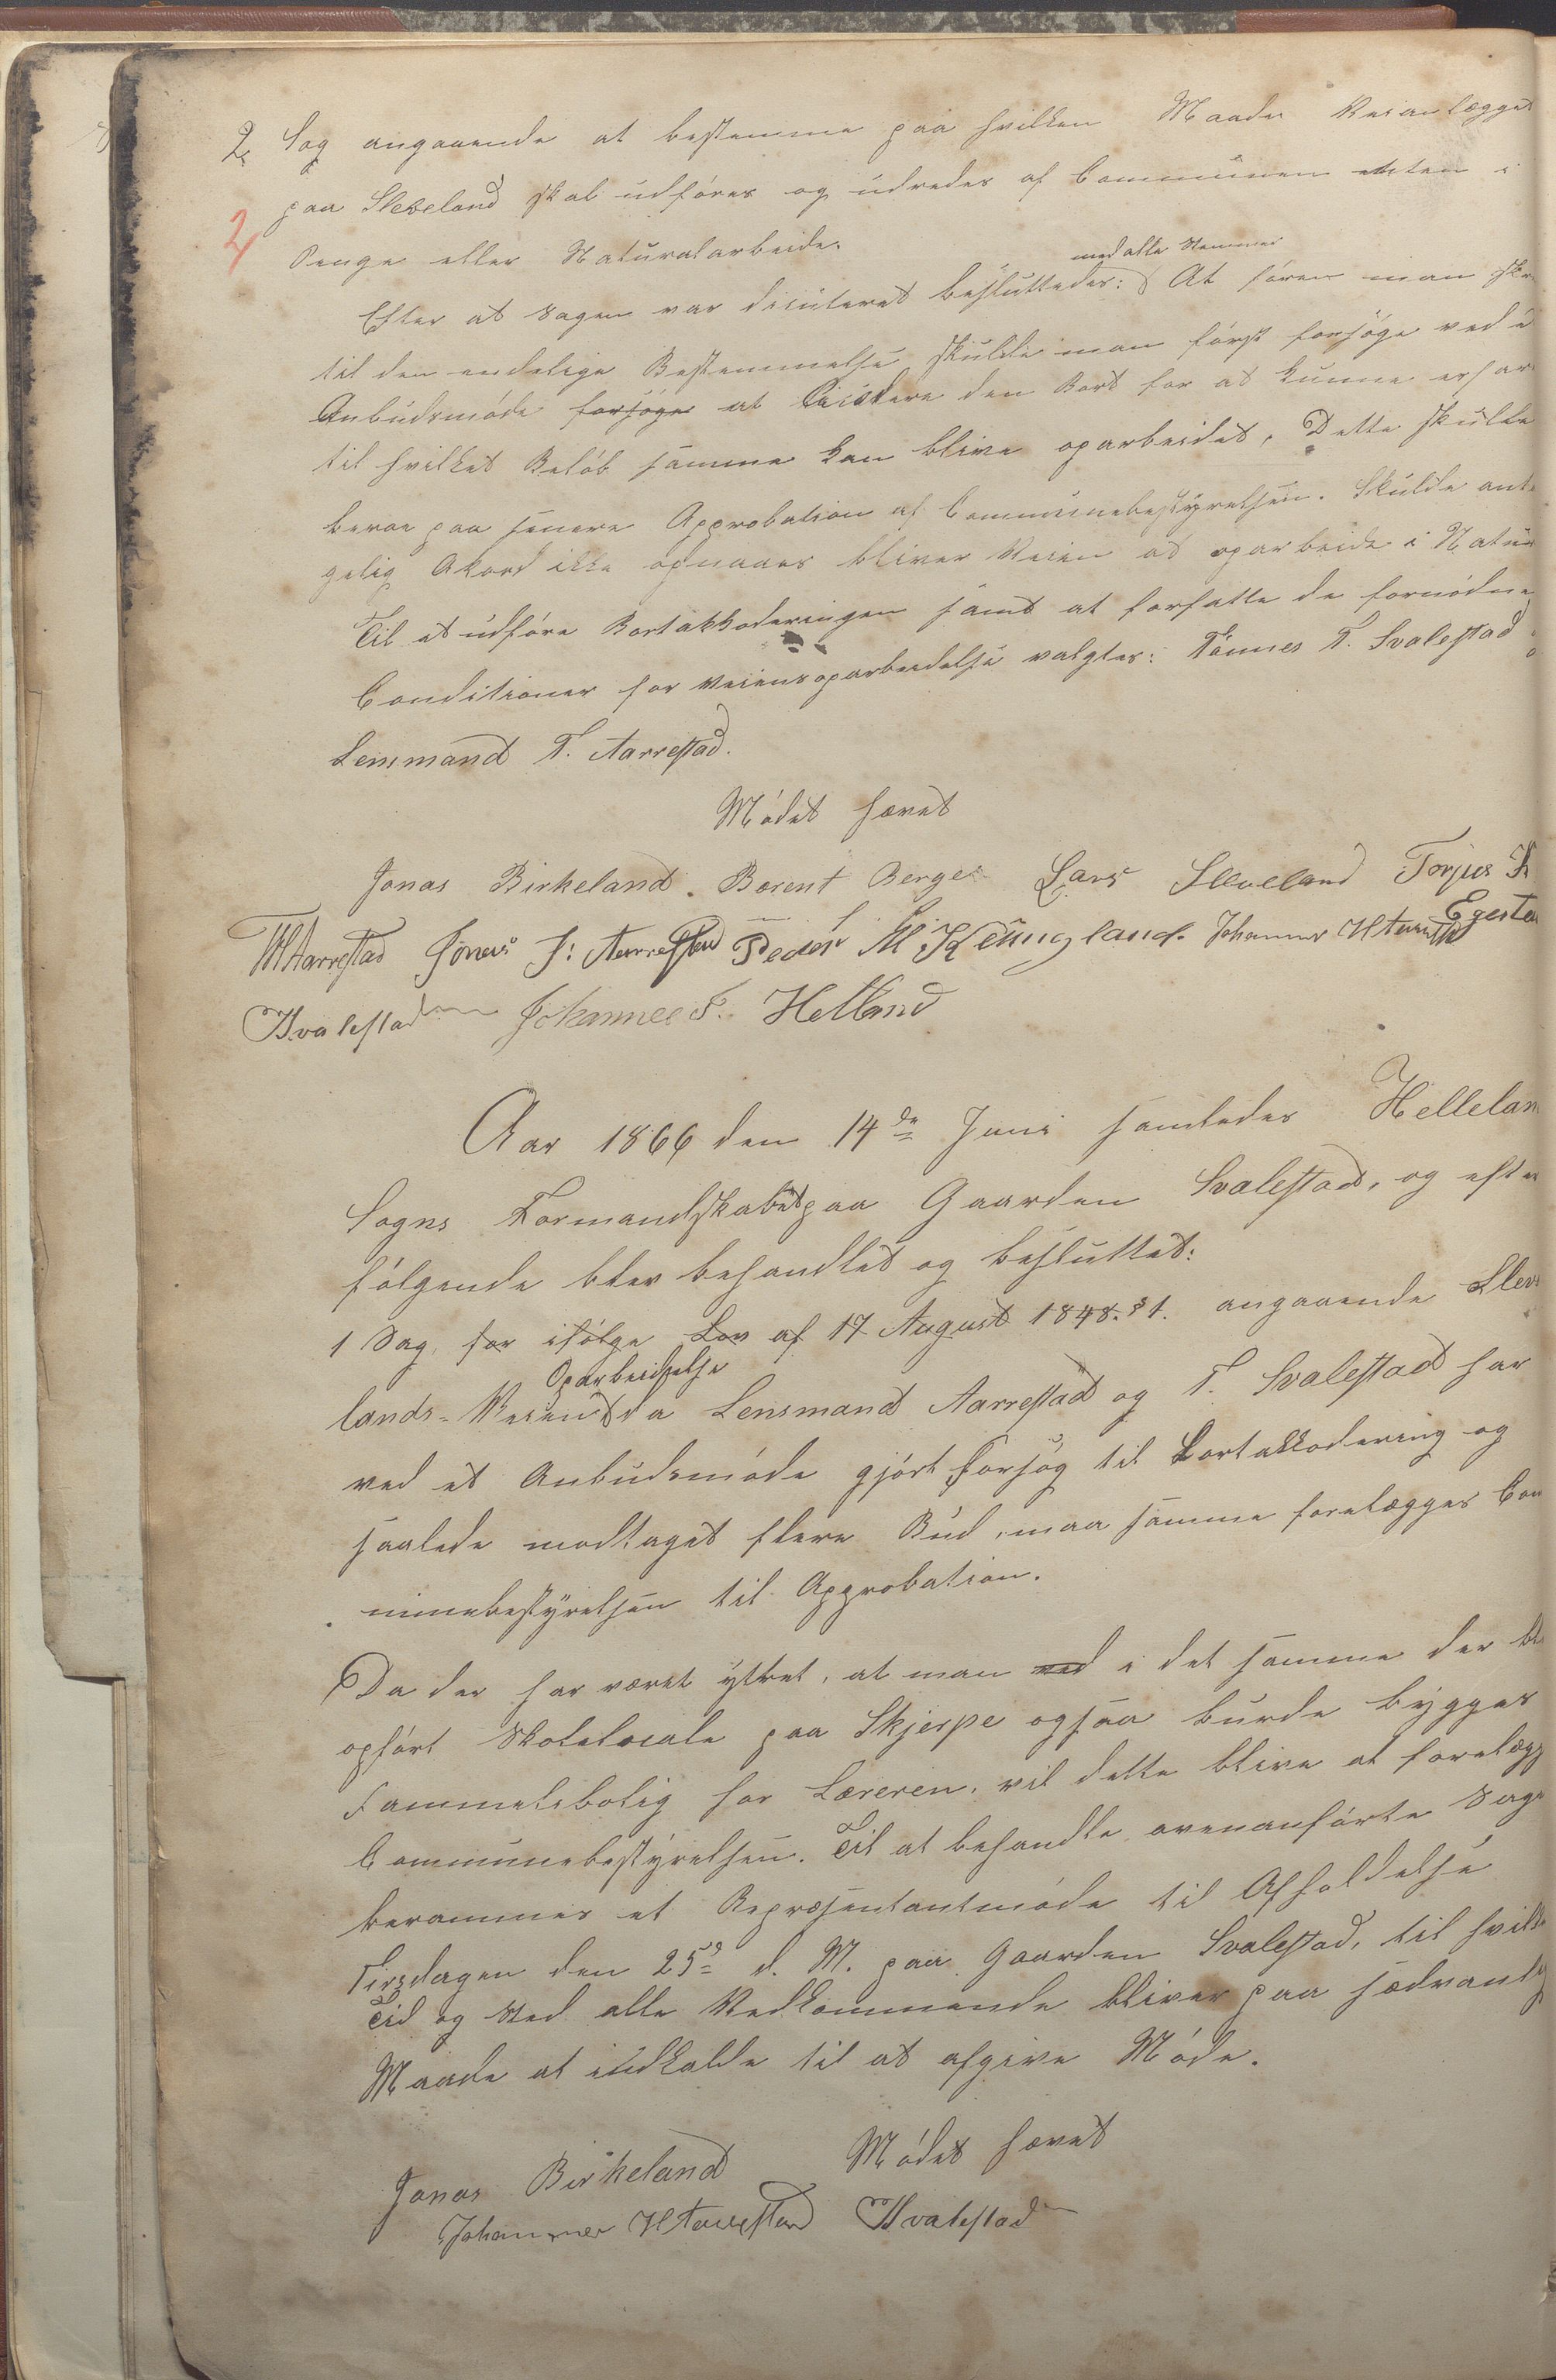 2 Sag angaaende at bestemme paa hvilken Maade Veianlægget
paa Sleveland skal udføres og udredes af Communen enten i
2
Penge eller Naturalarbeide.
med alle Stemmer
Efter at Sagen var discuteret besluttedes: At føren man skr
til den endelige Bestemmelse skulde man først forsøge ved
Anbudsmøde forsøges at licitere den Bort for at kunne erfare
til hvilket Beløb samme kan blive oparbeidet. Dette skulde
beroe paa senere Approbation af Communebestyrelsen. Skulde ant
gelig Akord ikke opnaaes bliver Veien at oparbeide i Natur
Til at udføre Bortakkorderingen samt at forfatte de fornødne
Conditioner for Veiens oparbeidelse valgtes: Tønnes T. Svalestad
Lensmand T. Aarrestad.
Mødet hævet
Jonas Birkeland. Berent Berge Lars Sleveland Torjus
TAarrestad Jonas J: Aarrestad Peder M Kjeüngland. Johannes HAarrestad Egester
TSvalestad Johannes F. Helland
Aar 1866 den 14de Juni samledes Hellelan
Sogns Formandskabet paa Gaarden Svalestad, og efter
følgende blev behandlet og besluttet:
1 Sag, før ifølge Lov af 17 August 1848. § 1. angaaende Sleve
Oparbeidelse
lands-Veiens da Lensmand Aarrestad og T. Svalestad har
ved et Anbudsmøde gjørt Forsøg til Bortakkordering og
saalede modtaget flere Bud, maa samme forelægges Com
munebestyrelsen til Approbation.
Da der har været yttret, at man ved i det samme der bl
opført Skolelocale paa Skjerpe ogsaa burde bygges
Fammeliebolig for Læreren, vil dette blive at forelægg
Communebestyrelsen. Til at behandle ovenanførte Sage
berammes et Repræsentantmøde til Afholdelse
Tirsdagen den 25de d. M. paa Gaarden Svalestad, til hvilk
Tid og Sted alle Vedkommende bliver paa sædvanlig
Maade at indkalde til at afgive Møde.
Mødet hævet
Jonas Birkeland
Johannes HAarrestad TSvalestad